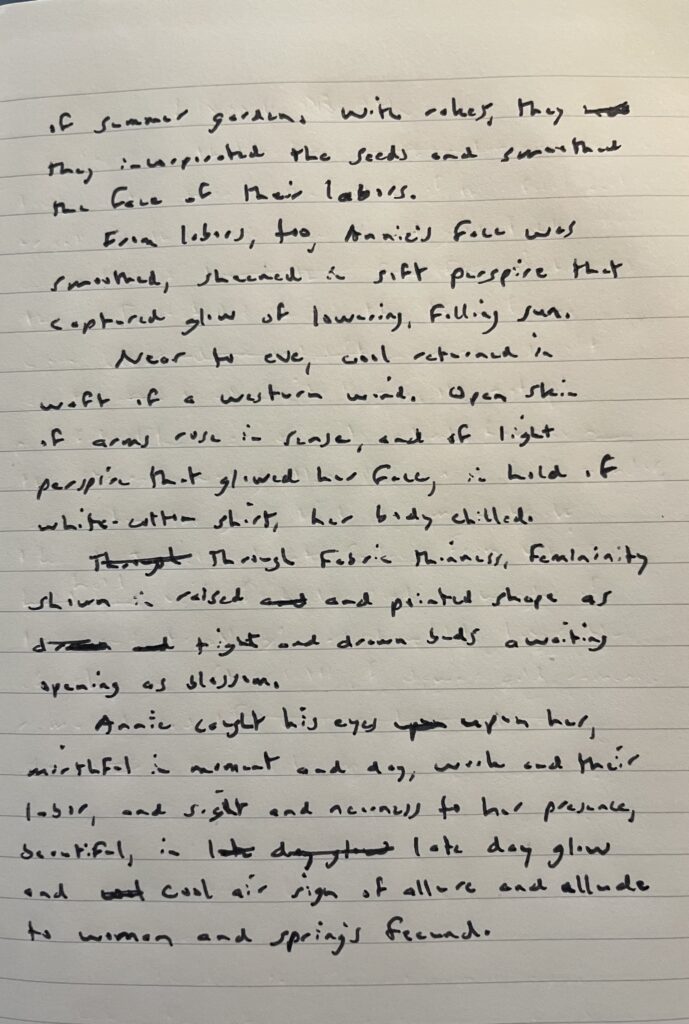 of summer gardens. With rakes, they
they incorporated the seeds and smoothed
the face of their labors.
From labors, too, Annie's face was
smoothed, sheened in soft perspire that
captured glow of lowering, falling sun.
Near to eve, cool returned in
waft of a western wind. Open skin
of arms rose in sense, and of light
perspire that glowed her face, in hold of
white-cotton shirt, her body chilled.
Through Through fabric thinness, femininity
shown in raised and and pointed shape as
drawn and tight and drawn buds awaiting
opening as blossom.
Annie caught his eyes upon upon her,
mirthful in moment and day, work and their
labor, and sight and nearness to her presence,
beautiful, in late day glow late day glow
and cool air sign of allure and allude
to woman and spring's fecund.